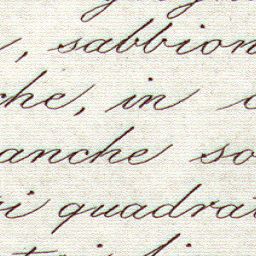 , sabbion
che, in
anche so
ri quadrat